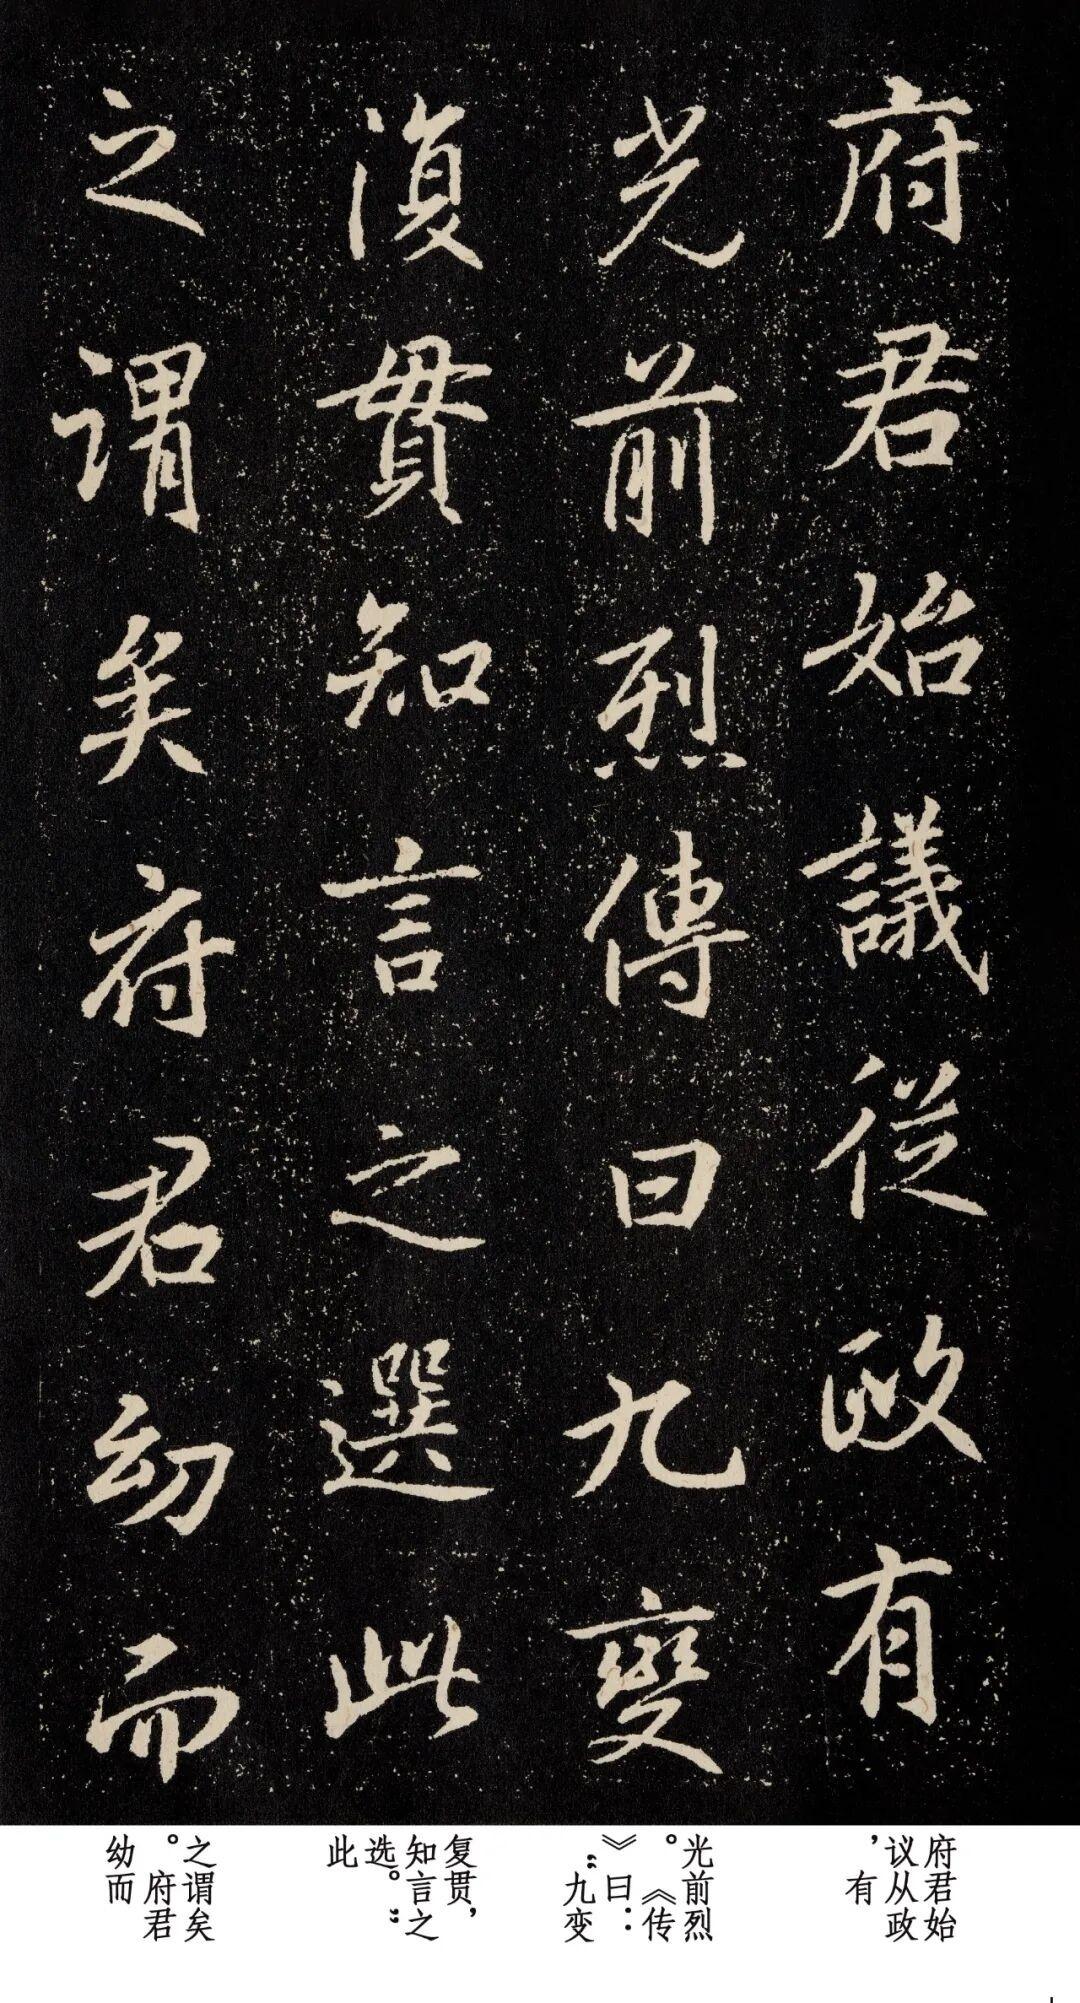 府君始議從政有
光前烈傳曰九變
復貫知言之選此
之謂矣府君幼而
府君始
议从政，
有
光前烈
。《传
》曰：
“九变
复贯，
知言之
选。”
此
之谓矣
。府君
幼而